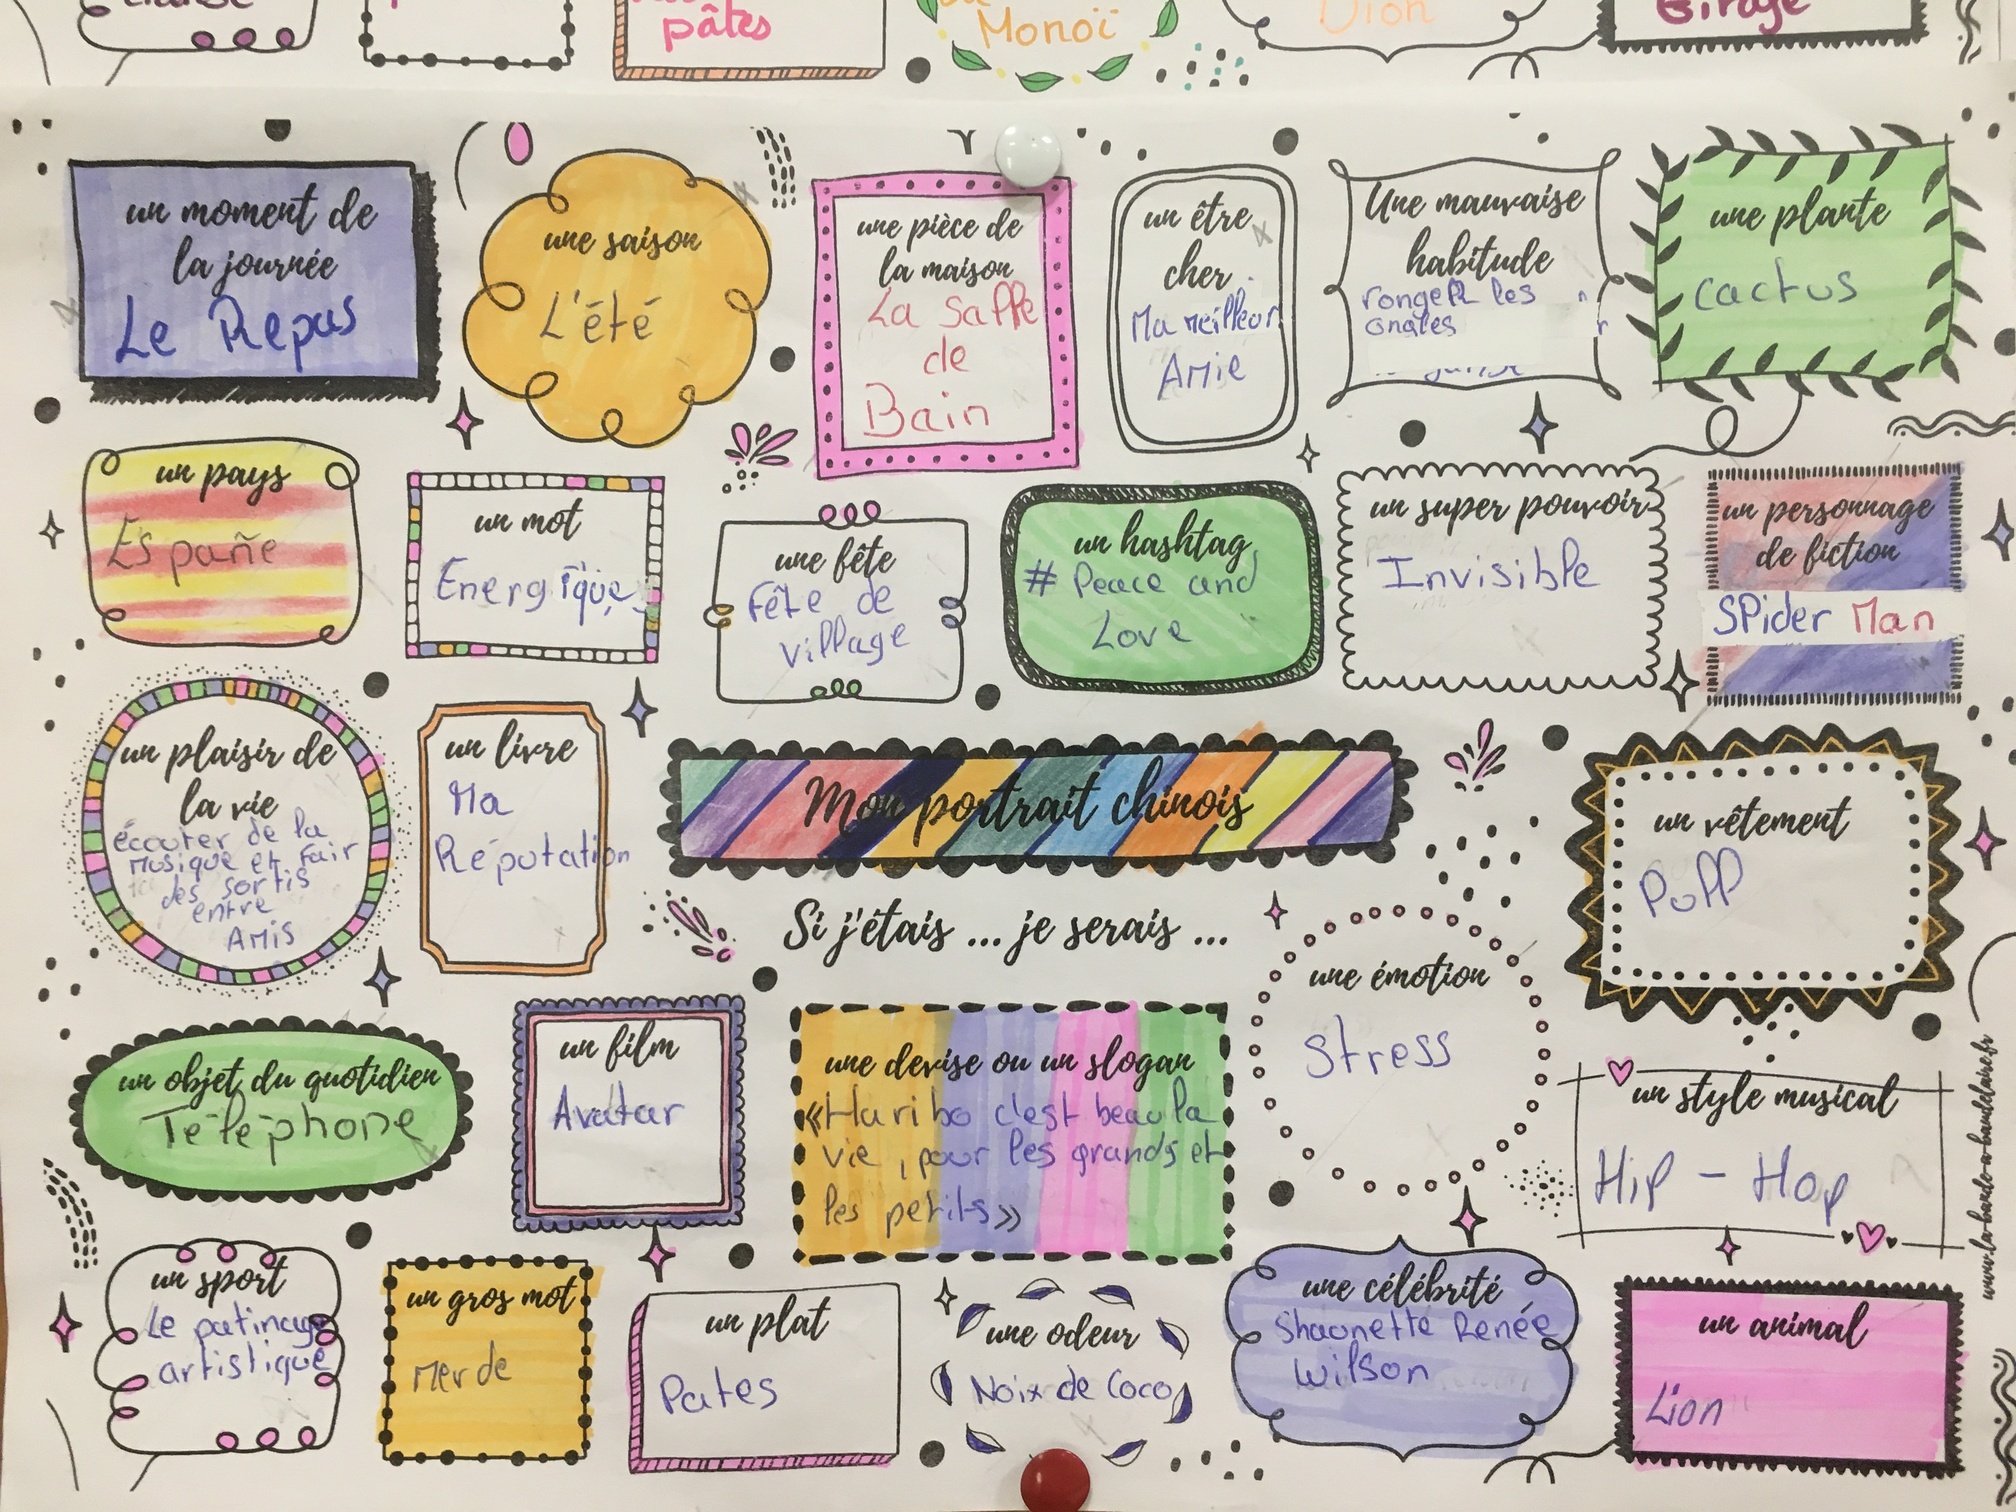 pâtes
Monoï
Dion
un moment de
la journée
Le Repas
une saison
L'été
une pièce de
la maison
La Salle
de
Bain
un être
cher
Ma meilleur
Amie
Une mauvaise
habitude
rongeR les
ongles
une plante
cactus
un pays
Españe
un mot
Energique
une fête
Fête de
village
un hashtag
# Peace and
Love
un super pouvoir
Invisible
un personnage
de fiction
SPider Man
un plaisir de
la vie
écouter de la
Musique et fair
des sortis
entre
AMis
un livre
Ma
Réputation
Mon portrait chinois
Si j'étais ... je serais ...
un vêtement
Pull
une émotion
Stress
un objet du quotidien
Téléphone
un film
Avatar
une devise ou un slogan
«Haribo c'est beau la
vie, pour les grands et
les petits»
un style musical
Hip - Hop
www.la-bande-a-baudelaire.fr
un sport
Le patinage
artistique
un gros mot
Merde
un plat
Pates
une odeur
Noix de Coco
une célébrité
Shaunette Renée
Wilson
un animal
Lion